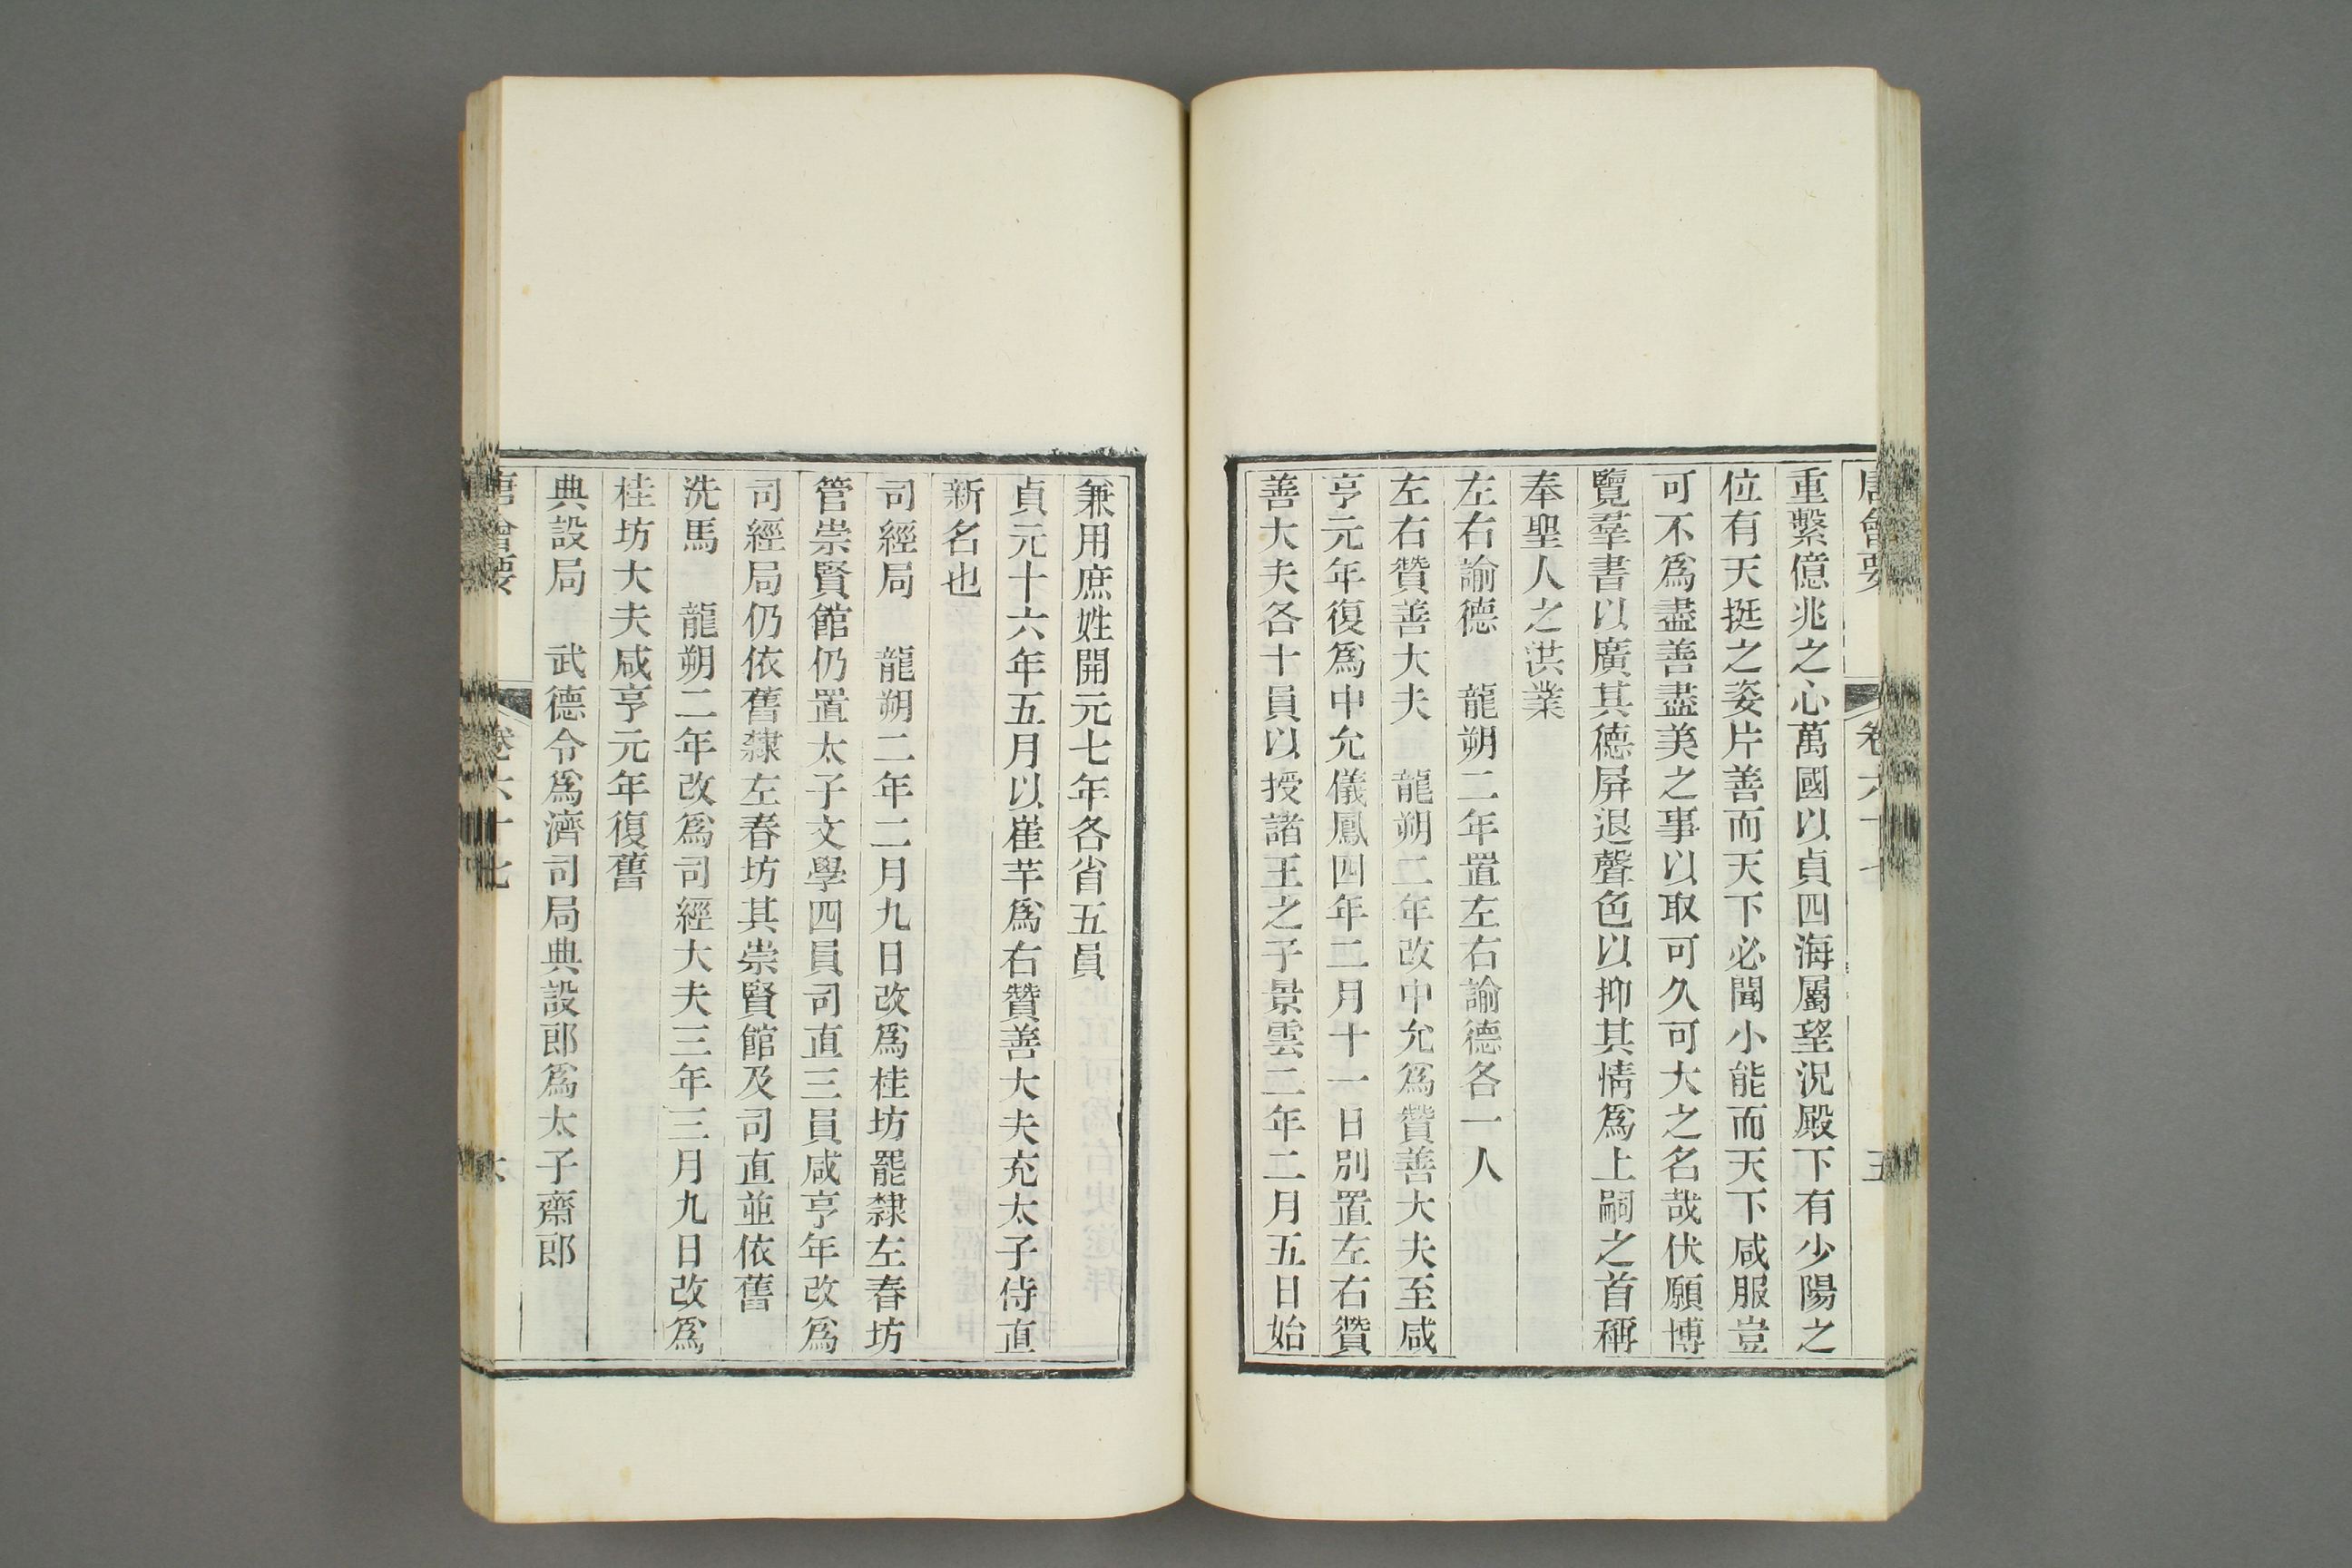 唐會要 卷六十七 五
重繫億兆之心萬國以貞四海屬望況殿下有少陽之
位有天挺之姿片善而天下必聞小能而天下咸服豈
可不爲盡善盡美之事以取可久可大之名哉伏願博
覽羣書以廣其德屏退聲色以抑其情爲上嗣之首稱
奉聖人之洪業
左右諭德 龍朔二年置左右諭德各一人
左右贊善大夫 龍朔二年改中允爲贊善大夫至咸
亨元年復爲中允儀鳳四年二月十一日別置左右贊
善大夫各十員以授諸王之子景雲二年二月五日始
兼用庶姓開元七年各省五員
貞元十六年五月以崔芊爲右贊善大夫充太子侍直
新名也
司經局 龍朔二年二月九日改爲桂坊罷隸左春坊
管崇賢館仍置太子文學四員司直三員咸亨年改爲
司經局仍依舊隸左春坊其崇賢館及司直並依舊
洗馬 龍朔二年改爲司經大夫三年三月九日改爲
桂坊大夫咸亨元年復舊
典設局 武德令爲濟司局典設郎爲太子齋郎
唐會要 卷六十七 六